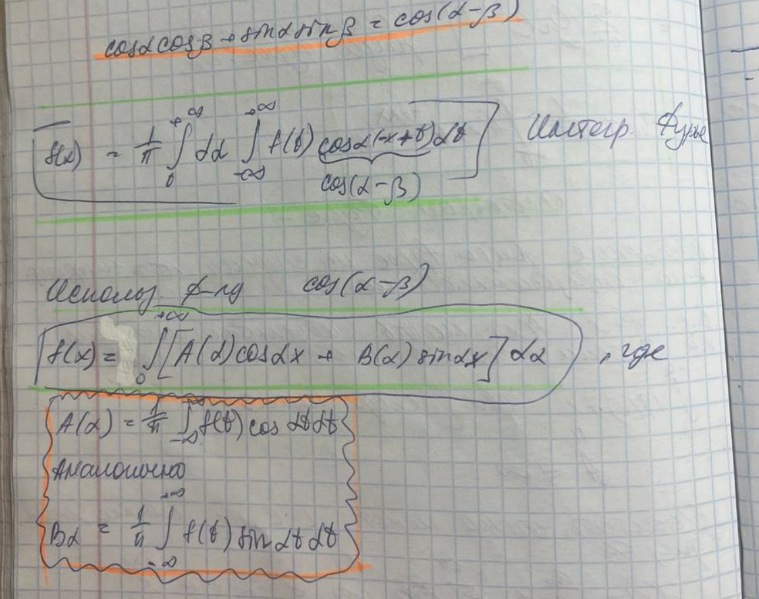 cosαcosβ + sinαsinβ = cos(α-β)
f(x) = 1/π ∫₀^{+∞} dα ∫_{-∞}^{+∞} f(t) cosα(-x+t)dt Интегр. Фурье
cos(α-β)
Использ. ф-лу cos(α-β)
f(x) = ∫₀^{+∞} [A(α)cosαx + B(α)sinαx] dα , где
A(α) = 1/π ∫_{-∞}^{+∞} f(t) cos αt dt
Аналогично
Bα = 1/π ∫_{-∞}^{+∞} f(t) sin αt dt